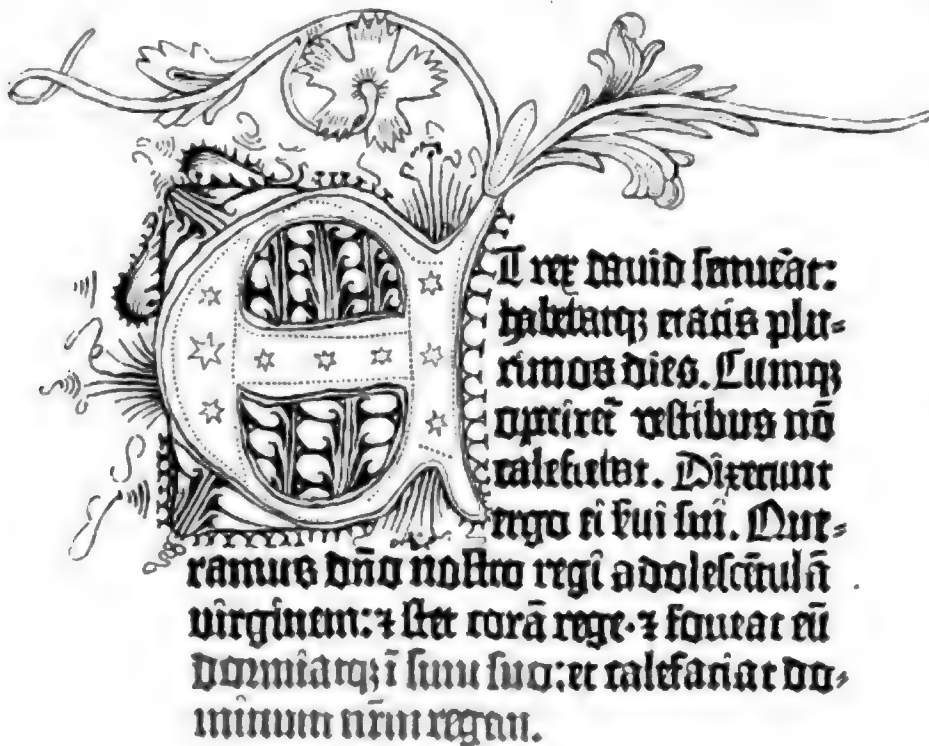 ET rex dauid senuēat:
habebatqꝫ etatis plu⸗
rimos dies. Cumqꝫ
operiret᷑ vestibus nō
calefiebat. Dixerunt
ergo ei ẜui sui. Que⸗
ramus dn̄o nostro regi adolescētulā
virginem: ⁊ stet corā rege· ⁊ foueat eū
dormiatqꝫ ī sinu suo: et calefaciat do⸗
minum nr̄m regem.